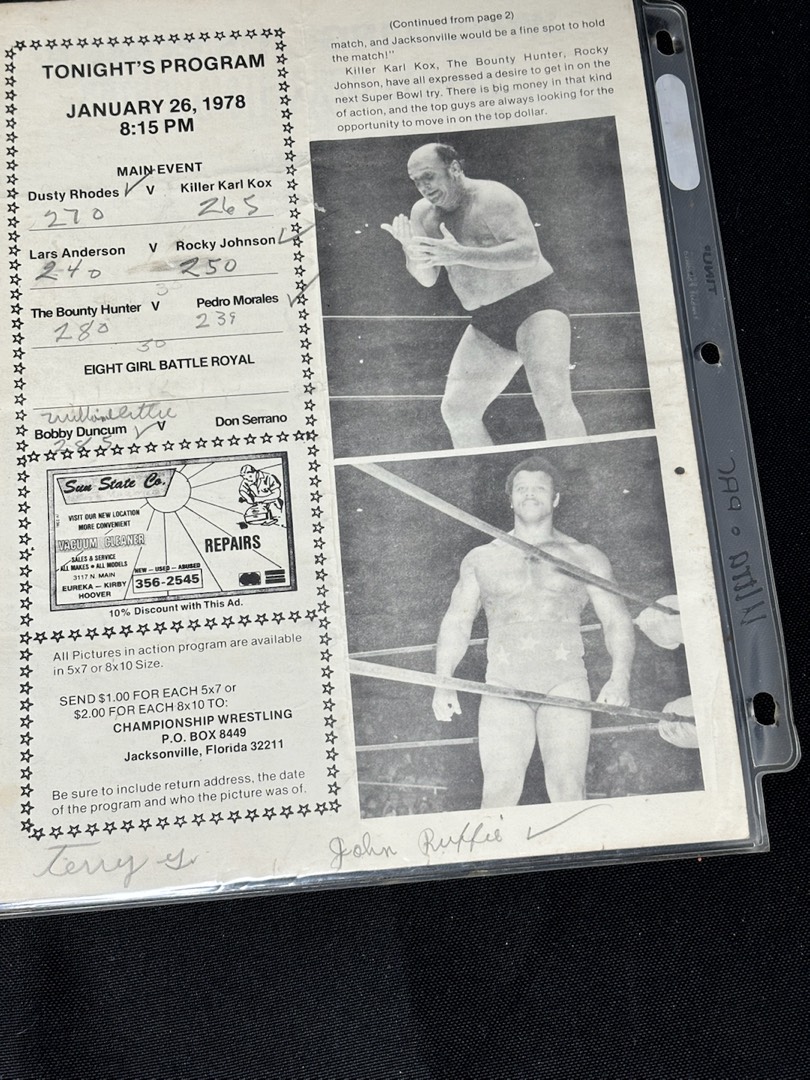 TONIGHT'S PROGRAM
JANUARY 26, 1978
8:15 PM
MAIN EVENT
Dusty Rhodes ✓ V Killer Karl Kox
270 265
Lars Anderson V Rocky Johnson ✓
240 250
The Bounty Hunter V Pedro Morales ✓
280 239
30
EIGHT GIRL BATTLE ROYAL
Bobby Duncum ✓ V Don Serrano
285
Sun State Co.
VISIT OUR NEW LOCATION
MORE CONVENIENT
VACUUM CLEANER
SALES & SERVICE
ALL MAKES • ALL MODELS
3117 N. MAIN
EUREKA - KIRBY
HOOVER
REPAIRS
NEW - USED - ABUSED
356-2545
10% Discount with This Ad.
All Pictures in action program are available
in 5x7 or 8x10 Size.
SEND $1.00 FOR EACH 5x7 or
$2.00 FOR EACH 8x10 TO:
CHAMPIONSHIP WRESTLING
P.O. BOX 8449
Jacksonville, Florida 32211
Be sure to include return address, the date
of the program and who the picture was of.
Terry
(Continued from page 2)
match, and Jacksonville would be a fine spot to hold
the match!"
Killer Karl Kox, The Bounty Hunter, Rocky
Johnson, have all expressed a desire to get in on the
next Super Bowl try. There is big money in that kind
of action, and the top guys are always looking for the
opportunity to move in on the top dollar.
John Ruffie ✓
Ultra • PRO